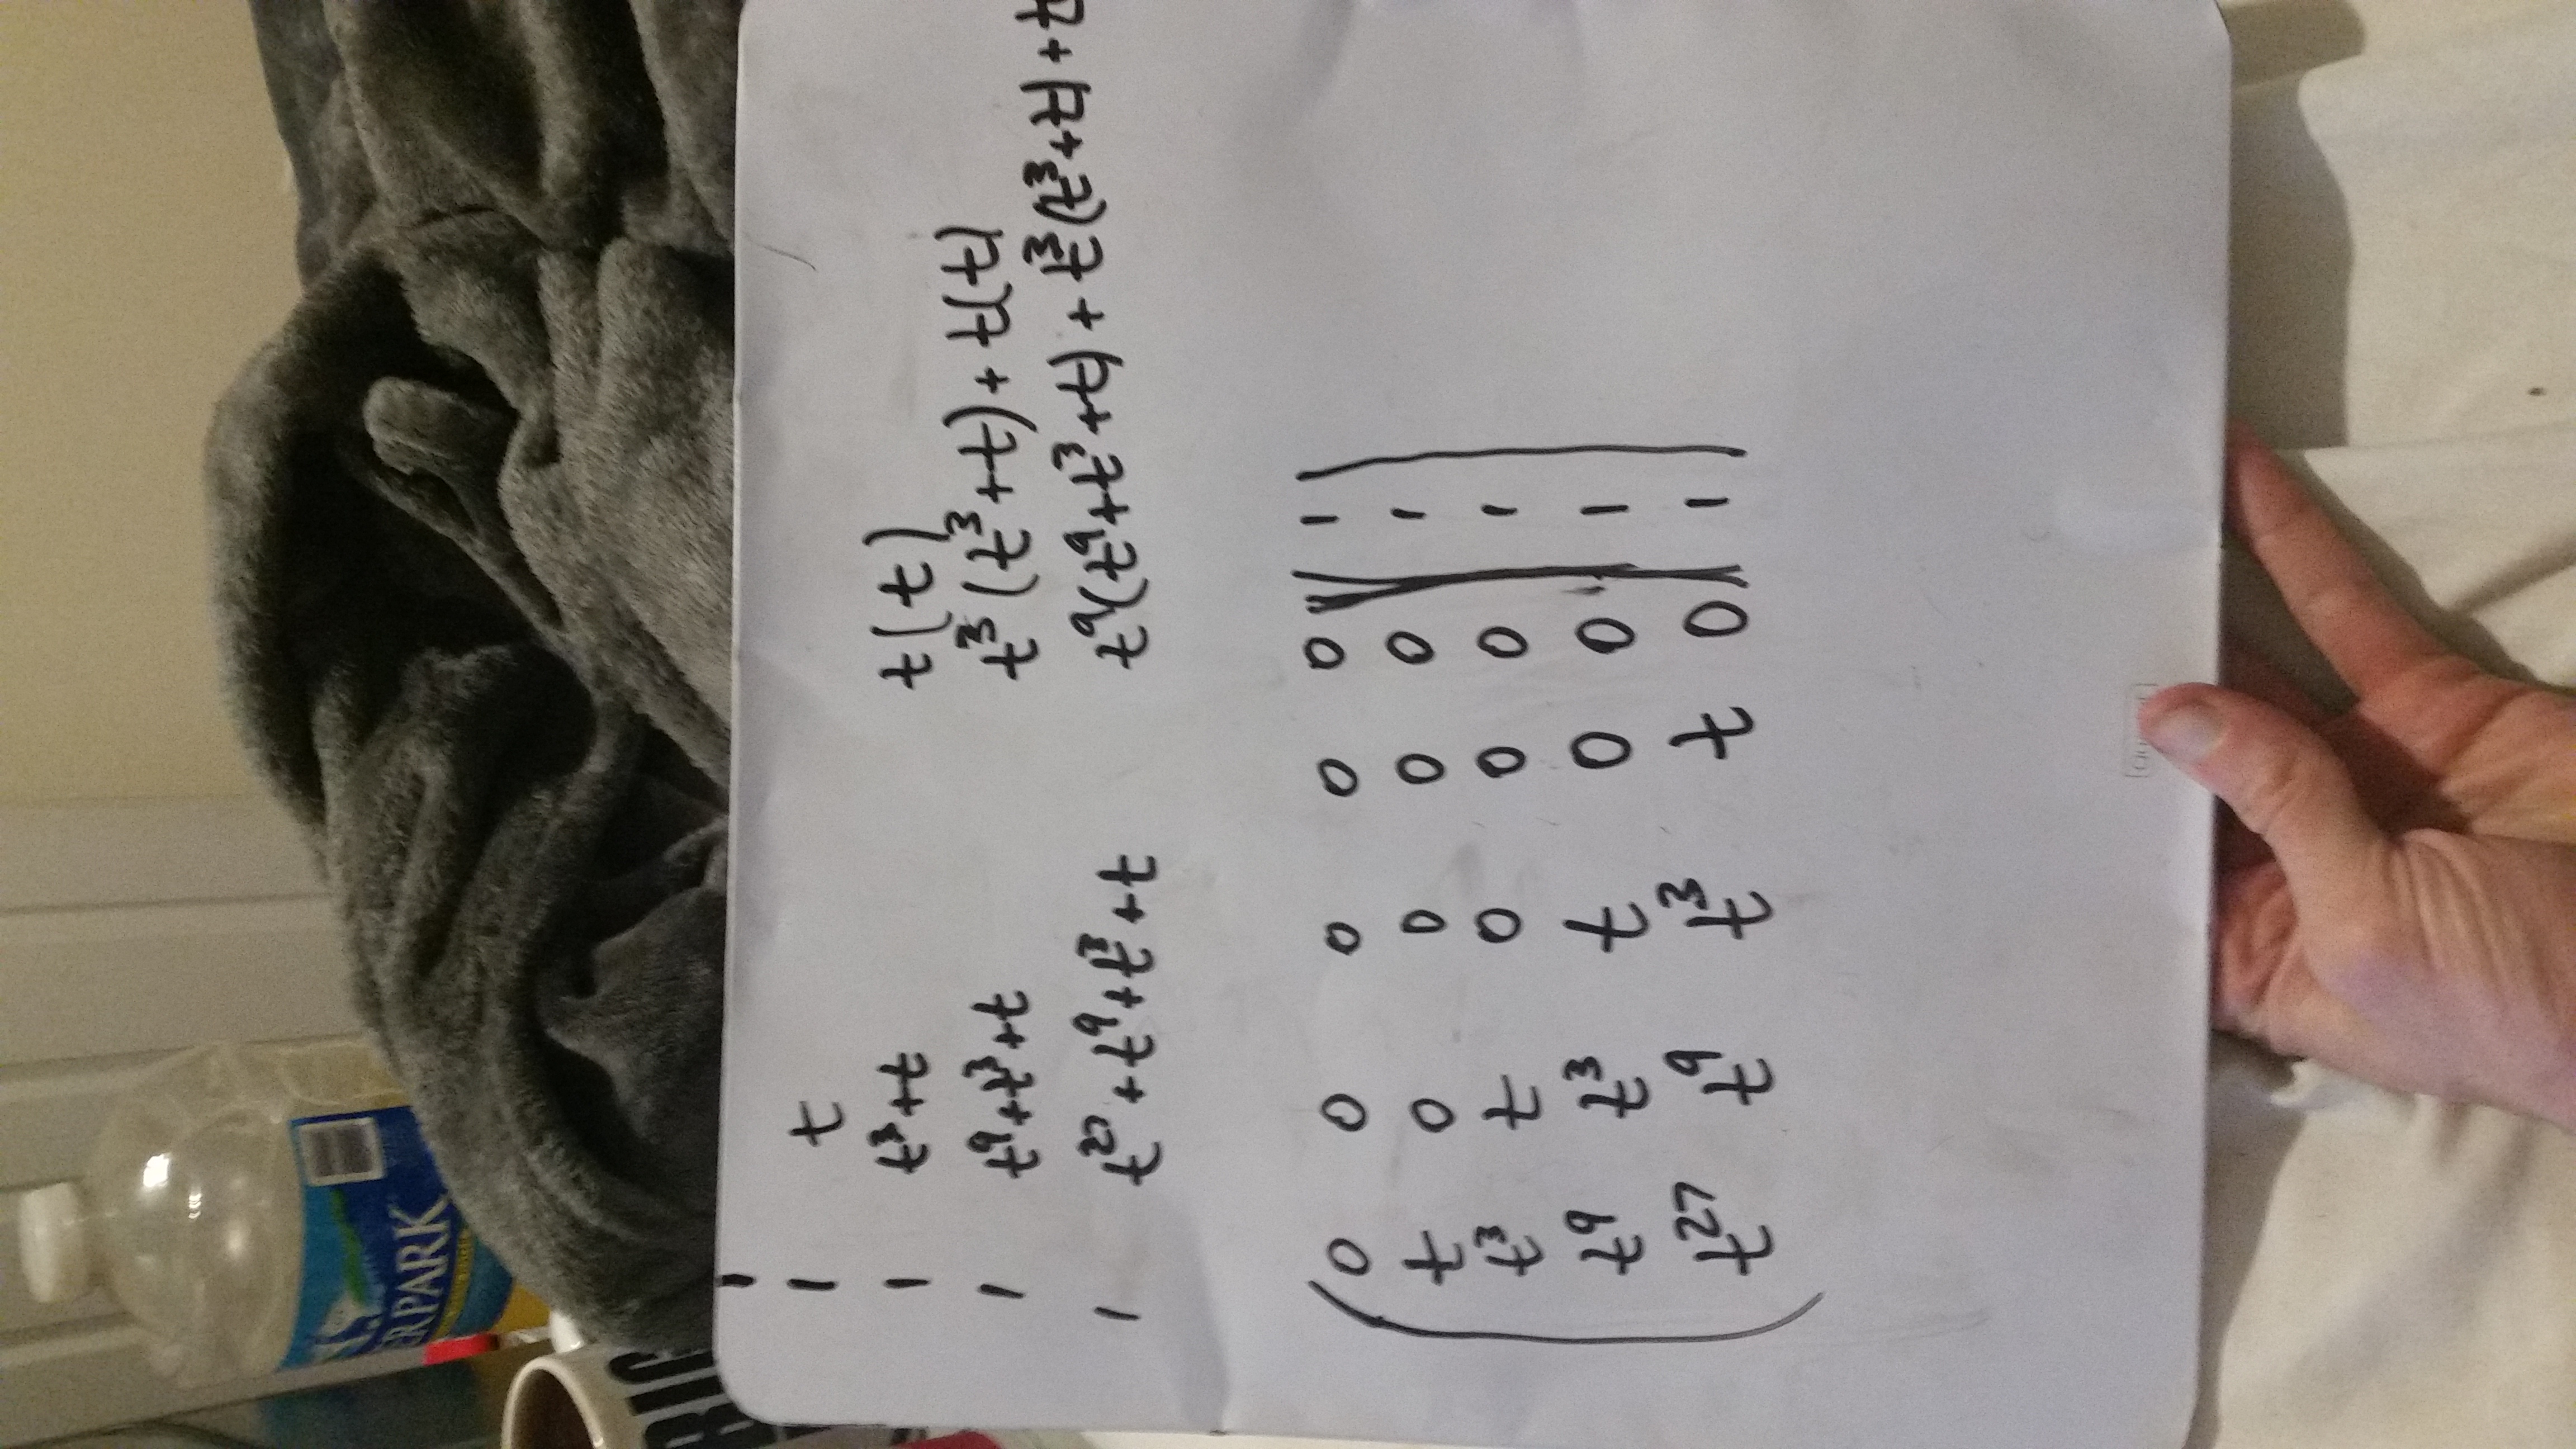 ERPARK
BIG
1
1 t
1 t³+t t(t)
1 t⁹+t³+t t³(t³+t)+t(t)
1 t²⁷+t⁹+t³+t t⁹(t⁹+t³+t)+t³(t³+t)+t
0 0 0 0 0 1
t 0 0 0 0 1
t³ t 0 0 0 1
t⁹ t³ t 0 0 1
t²⁷ t⁹ t³ t 0 1